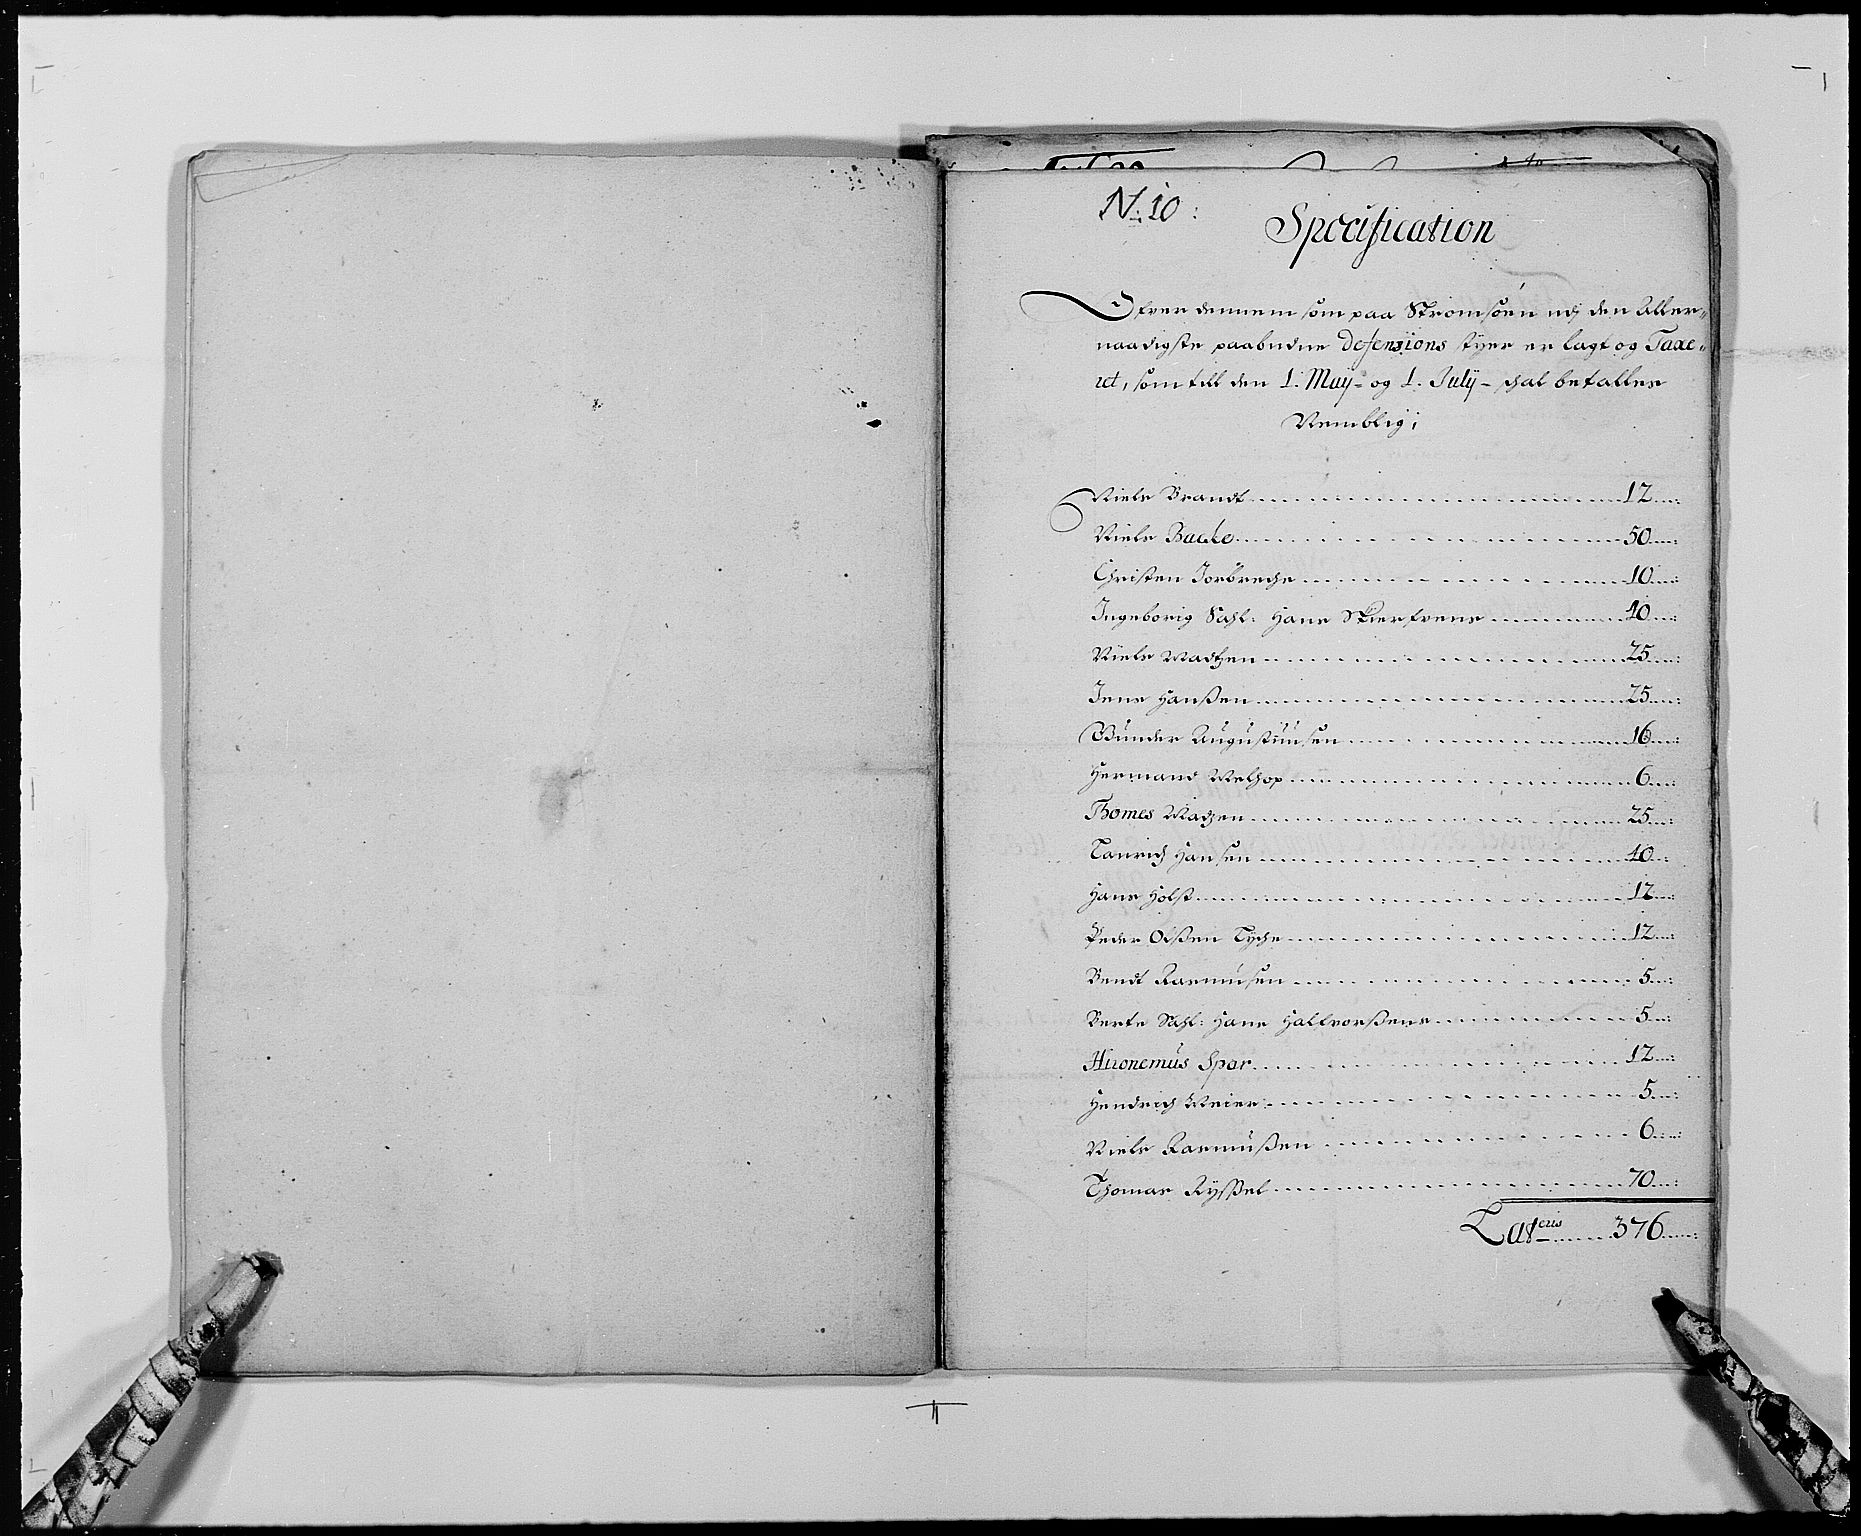 N: 10:
Specification
Ofver dennem som paa Strömsöen udj den Aller-
naadigste paabudne Defensions styer er lagt og Taxe-
ret, som till den 1. May- og 1. Julÿ- schal betalles
Nemblig;
Niels Brandt 12
Niels Backe 50
Christen 10
Ingeborig Sahl: Hans 40
Niels Madtzen 25
Jens Hanßen 25
Gunder Augustinusen 16
Hermand Welhop 6
Thomes Madtzen 25
Laurich Hansen 40
Hans Holst 12
Peder Olßen Tyche 12
Bendt Rasmusen 5
Berte Sahl: Hans Hallvorßens 5
Hironemus Spar 12
Hendrich Meier 5
Niels Rasmußen 6
Thomas Ryssel 70
Latcris 376